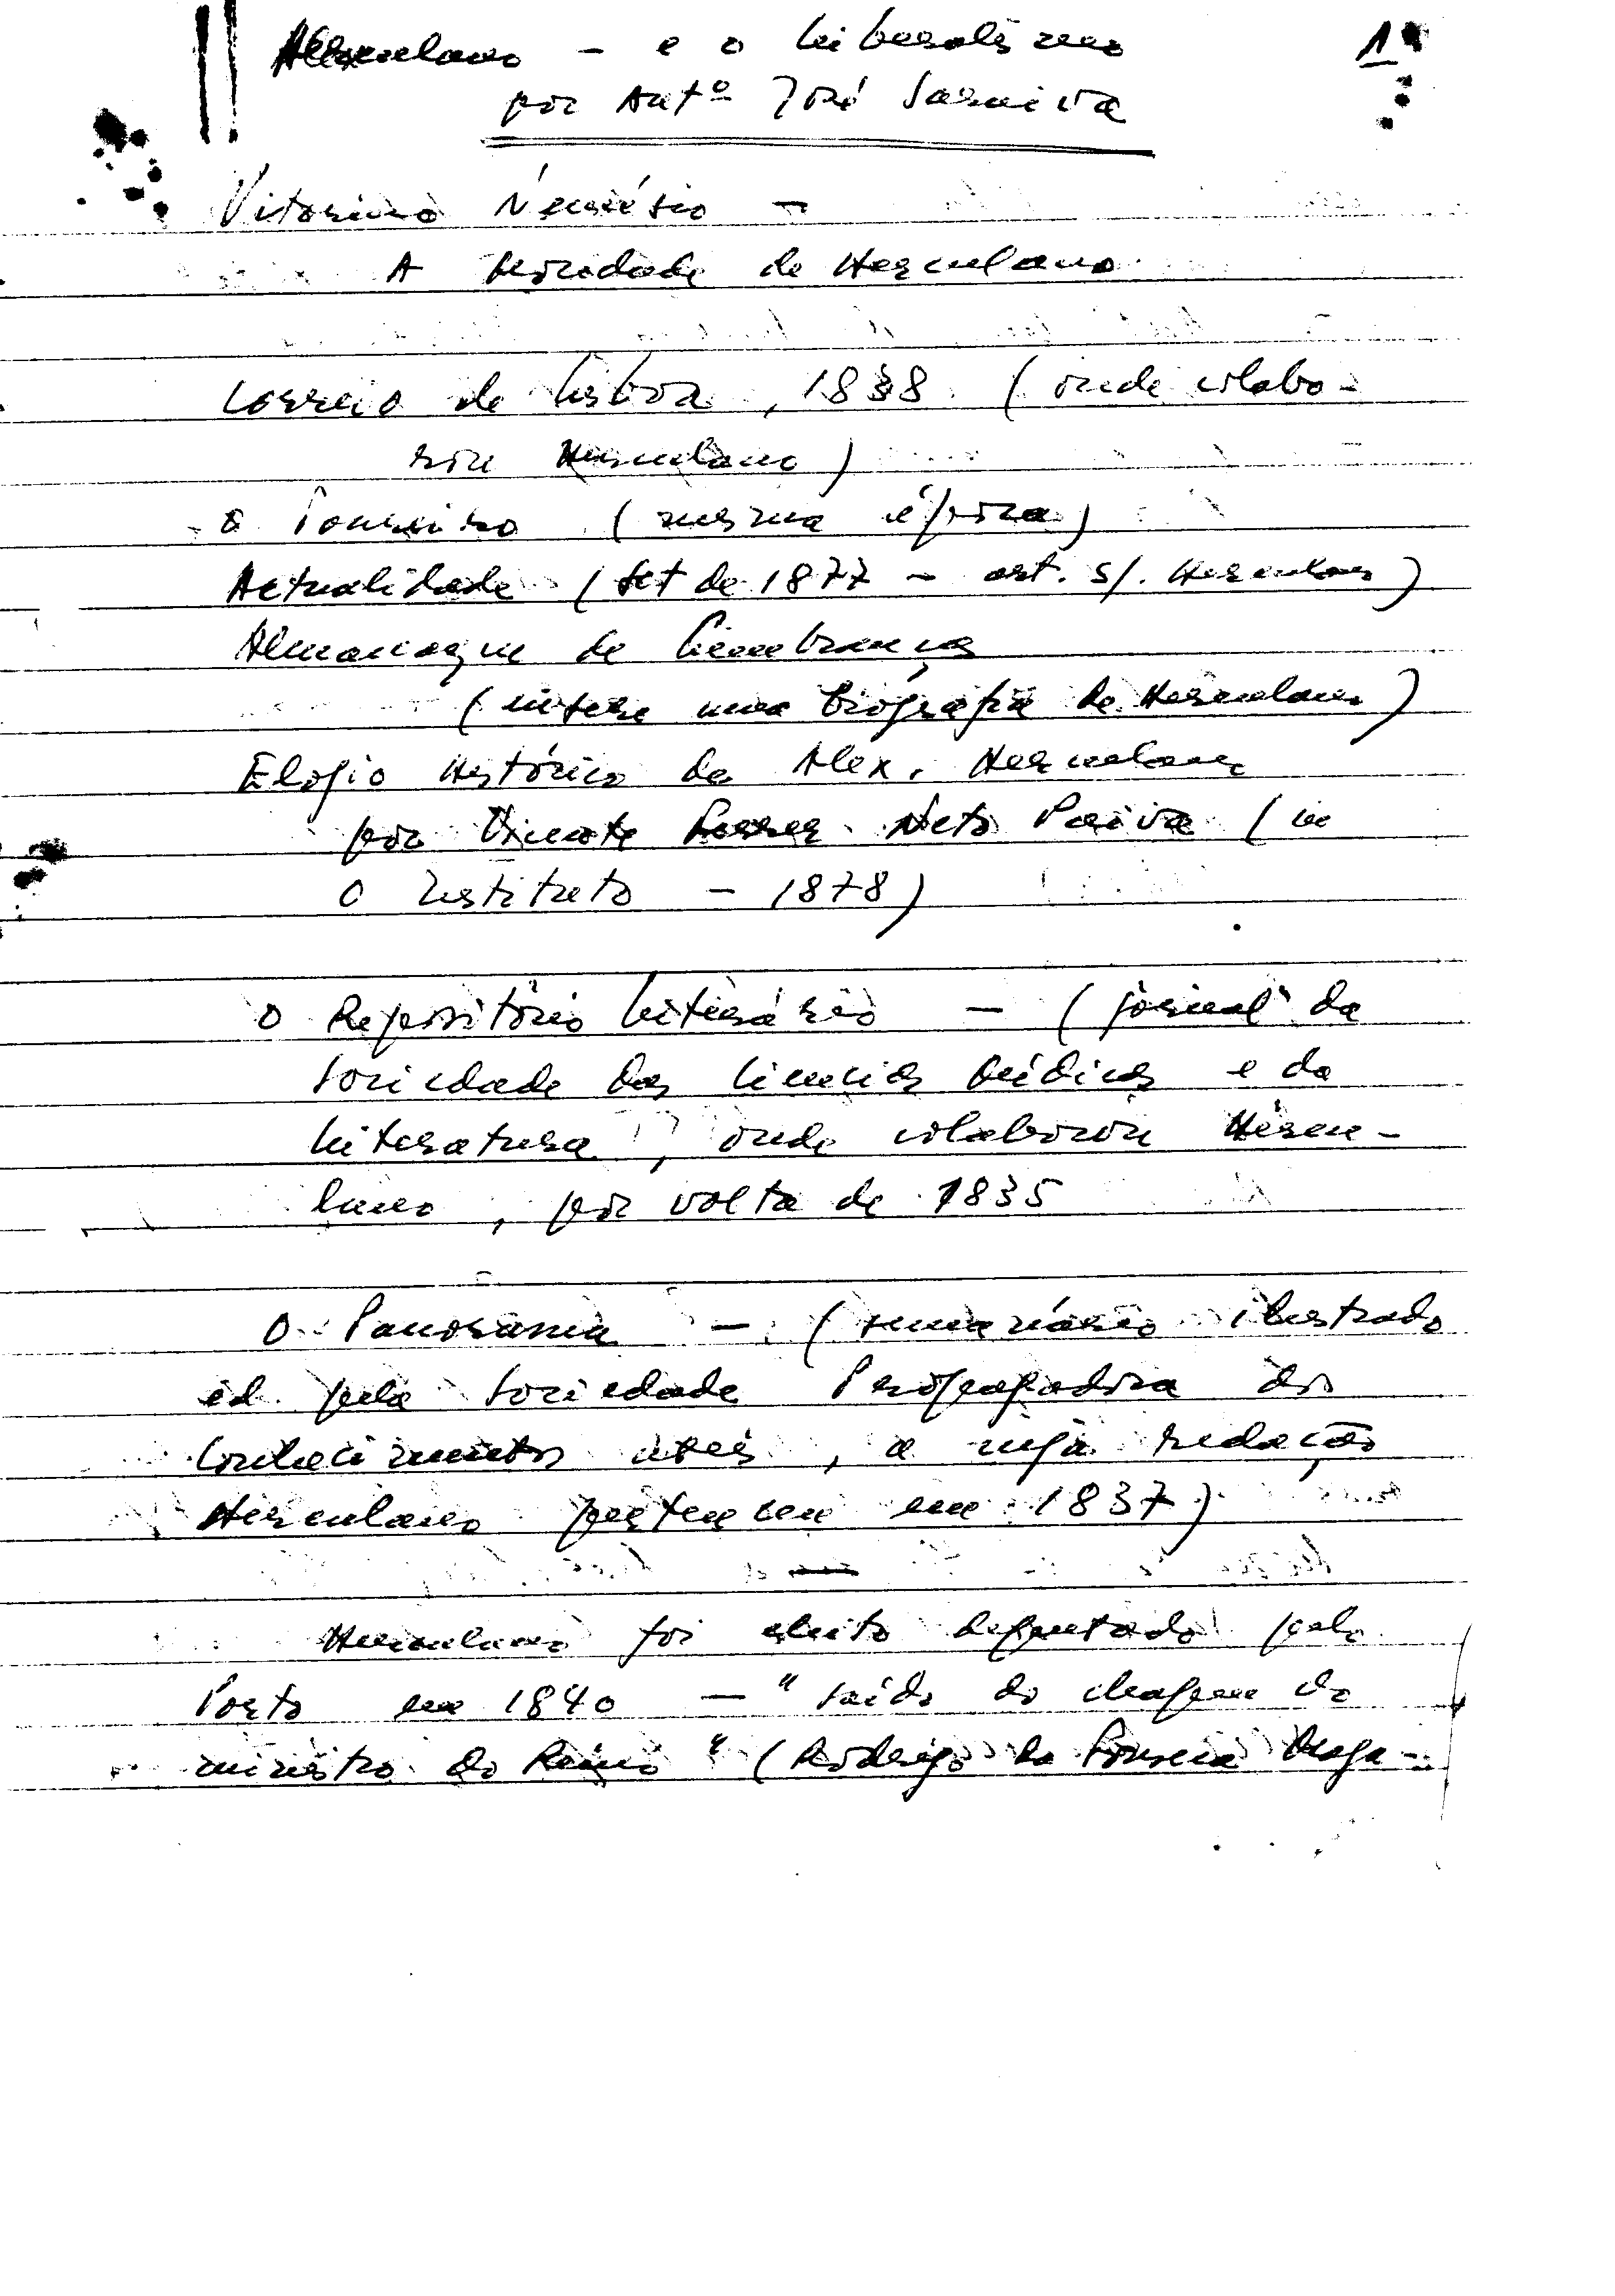 Herculano - e o Liberalismo 1
por Antº José Saraiva
Vitorino Nemésio -
A Mocidade de Herculano
Correio de Lisboa, 1838 (onde colabo-
rou Herculano)
(mesma época)
Actualidade (Set de 1877 - art. s/. Herculano)
Almanaque de Lembranças
(insere uma biografia de Herculano)
Elogio Histórico de Alex. Herculano
por Vicente Ferrer Neto Paiva (in
O Instituto - 1878)
O Repositório Literário - (jornal da
Sociedade das Ciências Médicas e da
Literatura, onde colaborou Hercu-
lano, por volta de 1835
O Panorama - (semanário ilustrado
ed. pela Sociedade Propagadora dos
Conhecimentos úteis, a cuja redação
Herculano pertenceu em 1837)
Herculano foi eleito deputado pelo
Porto em 1840 - "saído da chapa do
ministro do Reino" (Rodrigo da Fonseca Maga-